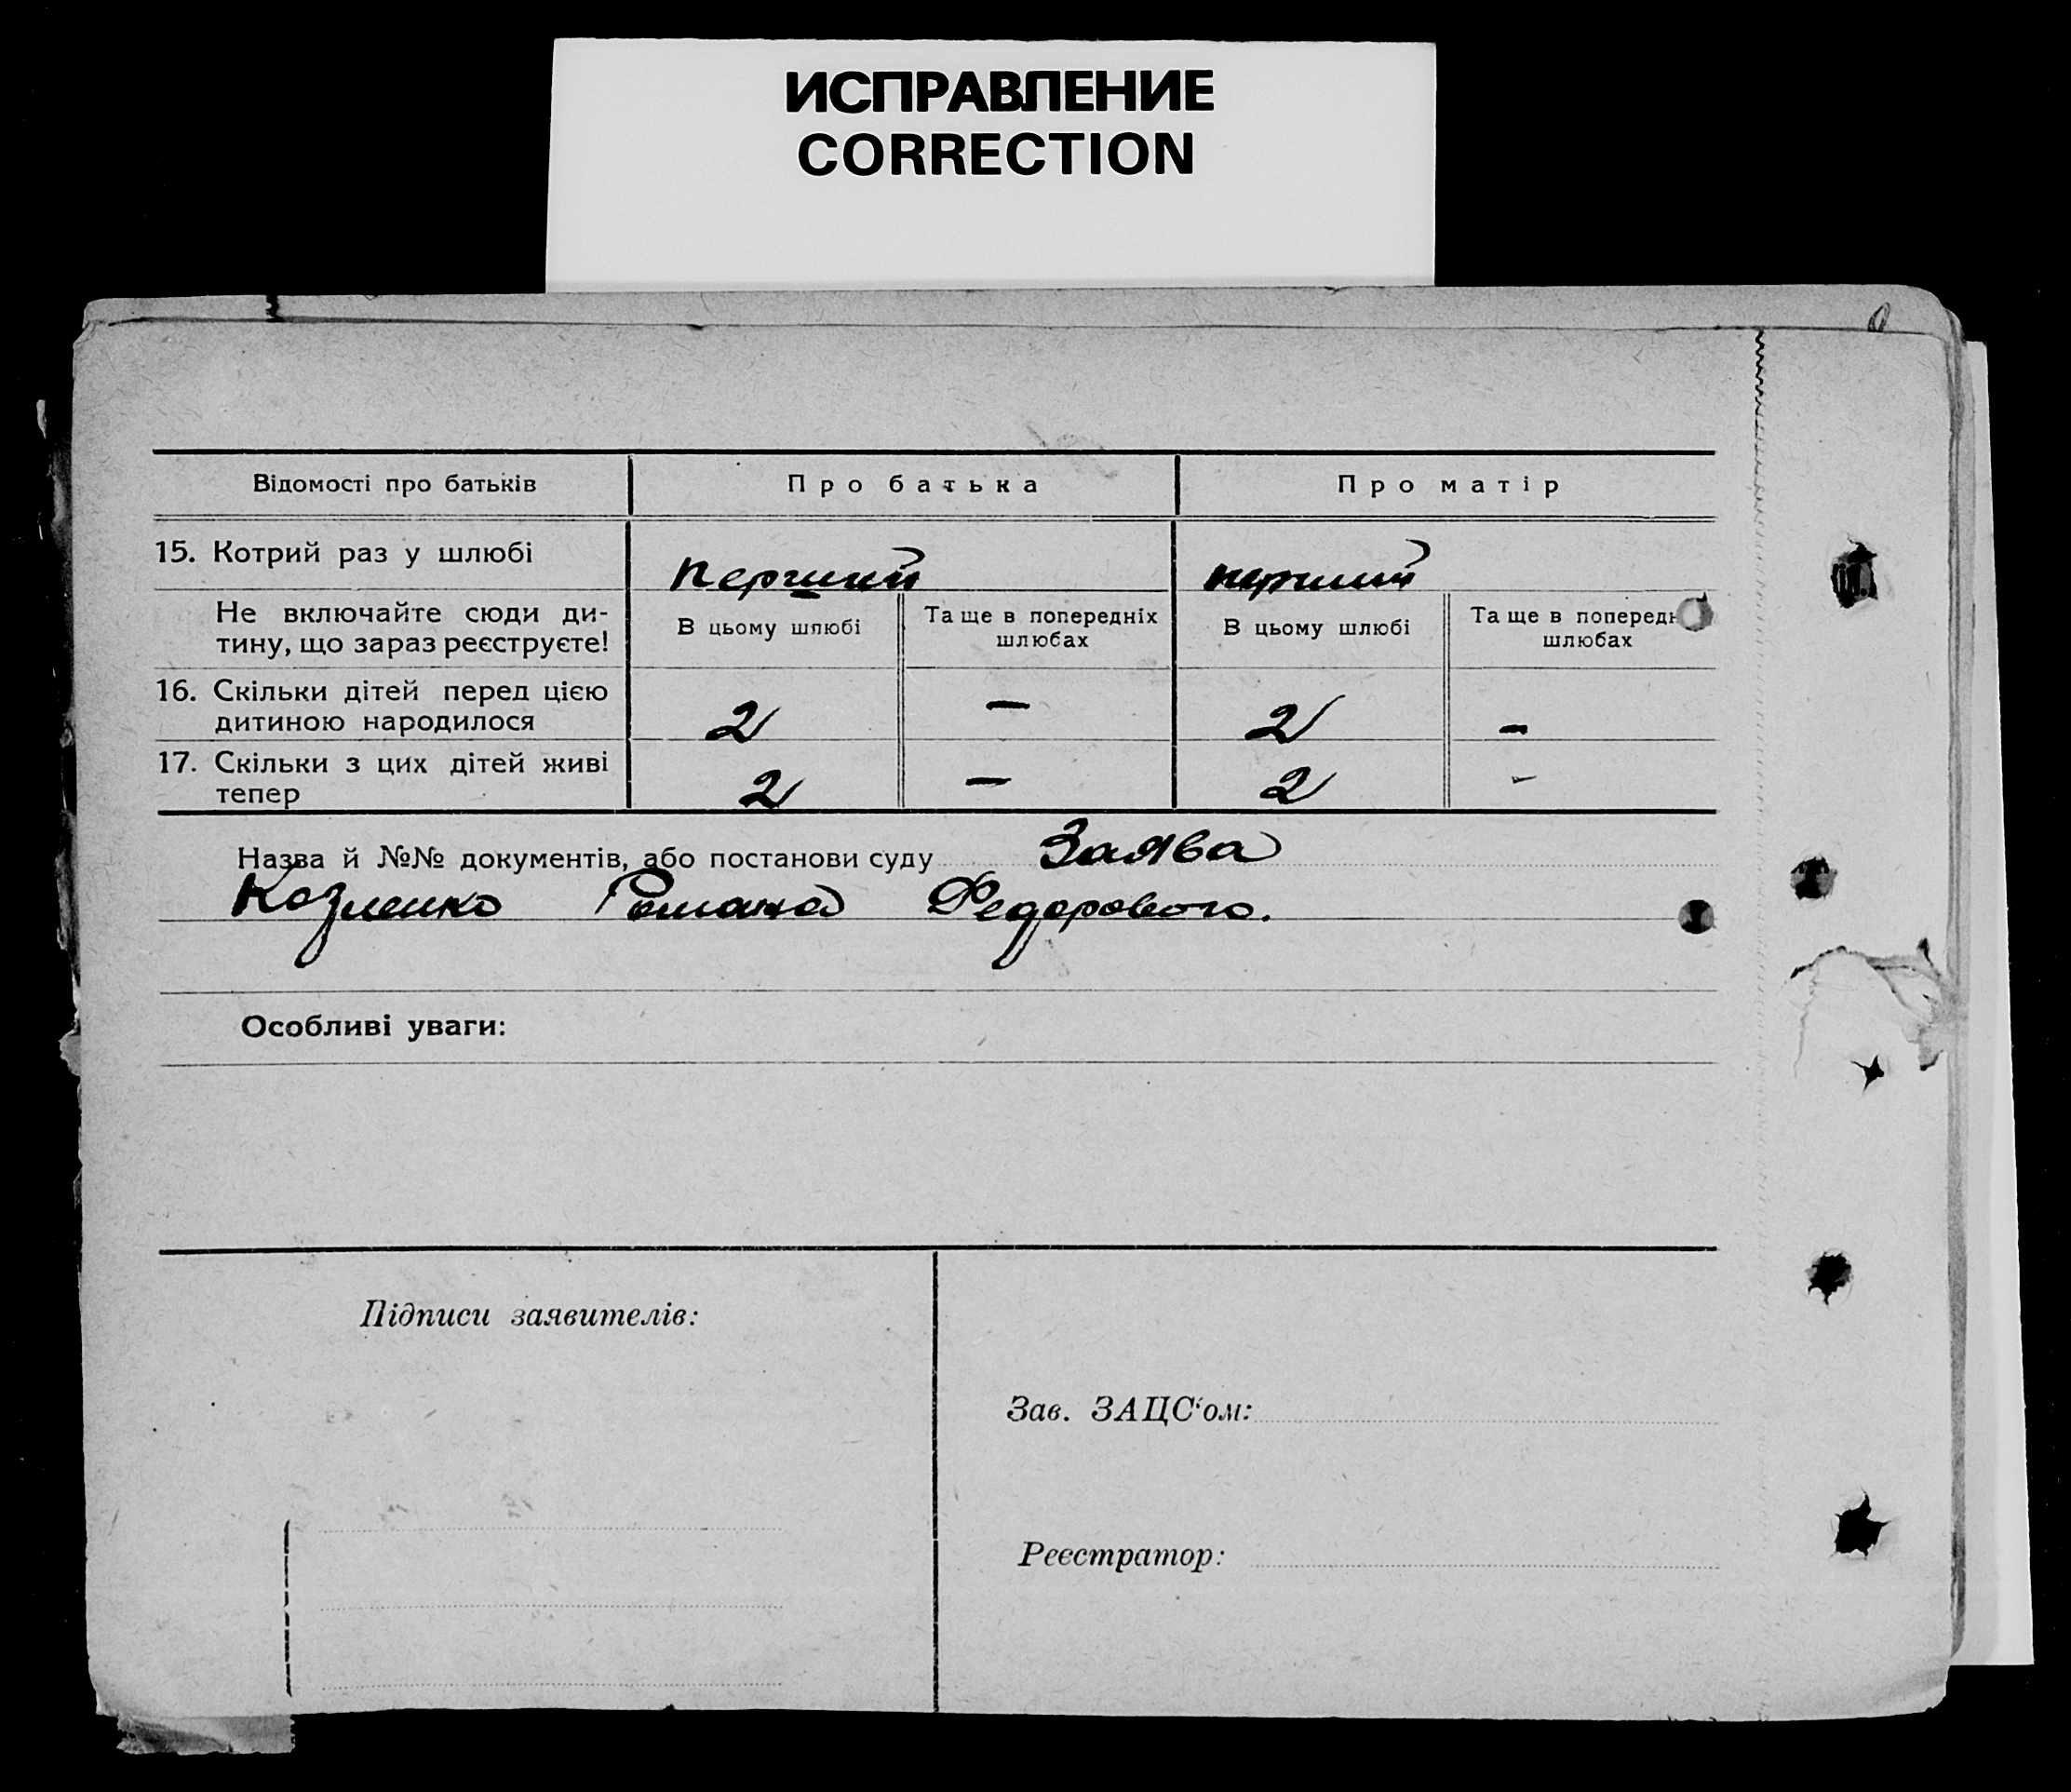 ИСПРАВЛЕНИЕ
CORRECTION
Відомості про батьків
Про батька
Про матір
15. Котрий раз у шлюбі
перший
перший
Не включайте сюди ди-
тину, що зараз реєструєте!
В цьому шлюбі
Та ще в попередніх
шлюбах
В цьому шлюбі
Та ще в поперед
шлюбах
16. Скільки дітей перед цією
дитиною народилося
2
—
2
-
17. Скільки з цих дітей живі
тепер
2
—
2
-
Назва й №№ документів, або постанови суду Заява
Козленко Романа Федорового.
Особливі уваги:
Підписи заявителів:
Зав. ЗАЦС‘ом:
Реєстратор: